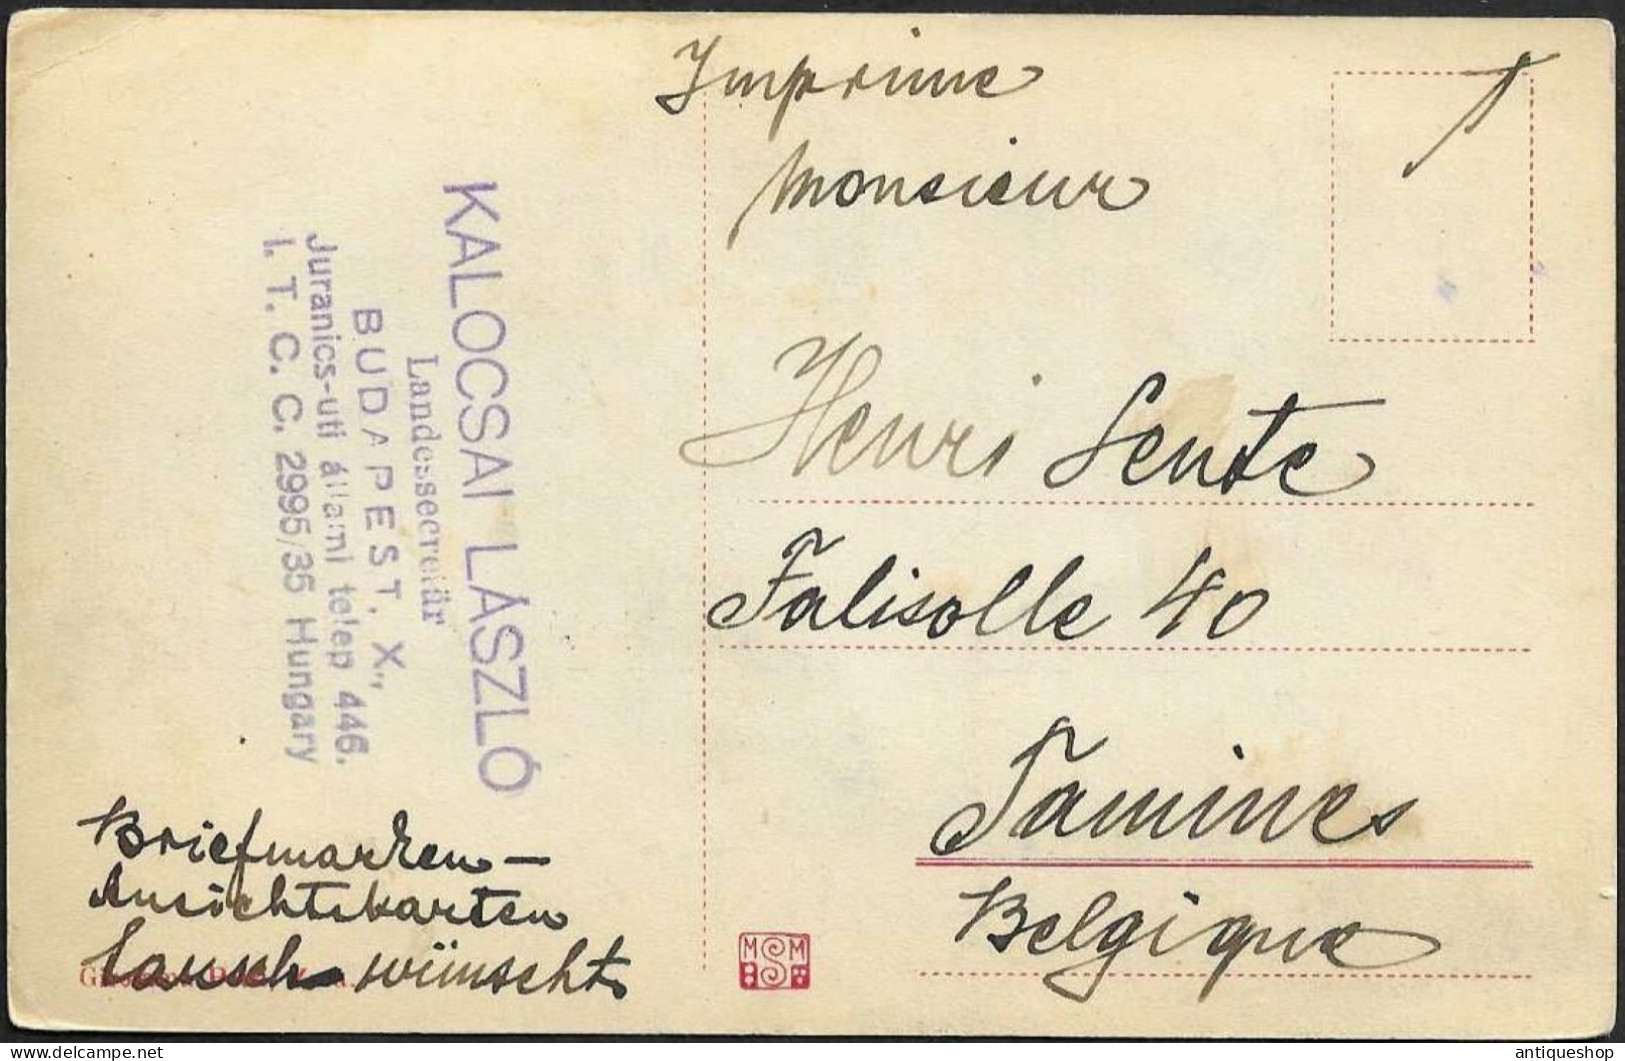 Imprime
Monsieur
Henri Sente
Falisolle 40
Tamines
Belgique
KALOCSAI LÁSZLÓ
Landessecretär
BUDAPEST, X.,
Juranics-uti állami telep 446.
I. T. C. C. 2995/35 Hungary
Briefmarken-
Ansichtskarten
Tausch wünscht
M S M
delcampe.net
antiqueshop